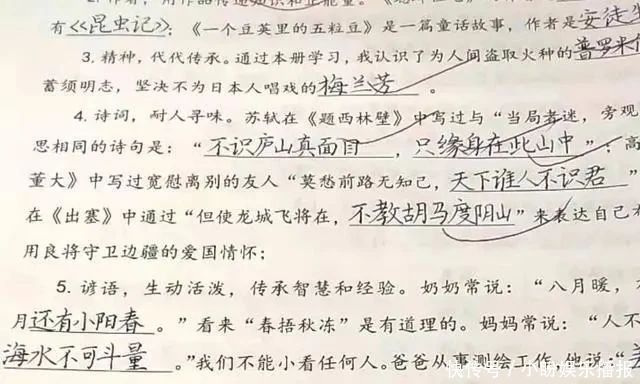 有《昆虫记》；《一个豆荚里的五粒豆》是一篇童话故事，作者是安徒生
3. 精神，代代传承。通过本册学习，我认识了为人间盗取火种的普罗米
蓄须明志，坚决不为日本人唱戏的梅兰芳。
4. 诗词，耐人寻味。苏轼在《题西林壁》中写过与“当局者迷，旁观
思相同的诗句是：“不识庐山真面目，只缘身在此山中”；高
董大》中写过宽慰离别的友人“莫愁前路无知己，天下谁人不识君”
在《出塞》中通过“但使龙城飞将在，不教胡马度阴山”来表达自己
用良将守卫边疆的爱国情怀；
5. 谚语，生动活泼，传承智慧和经验。奶奶常说：“八月暖，
月还有小阳春。”看来“春捂秋冻”是有道理的。妈妈常说：“人不
海水不可斗量。”我们不能小看任何人。爸爸从事测绘工作，他说：“
快传号/小盼娱乐播报